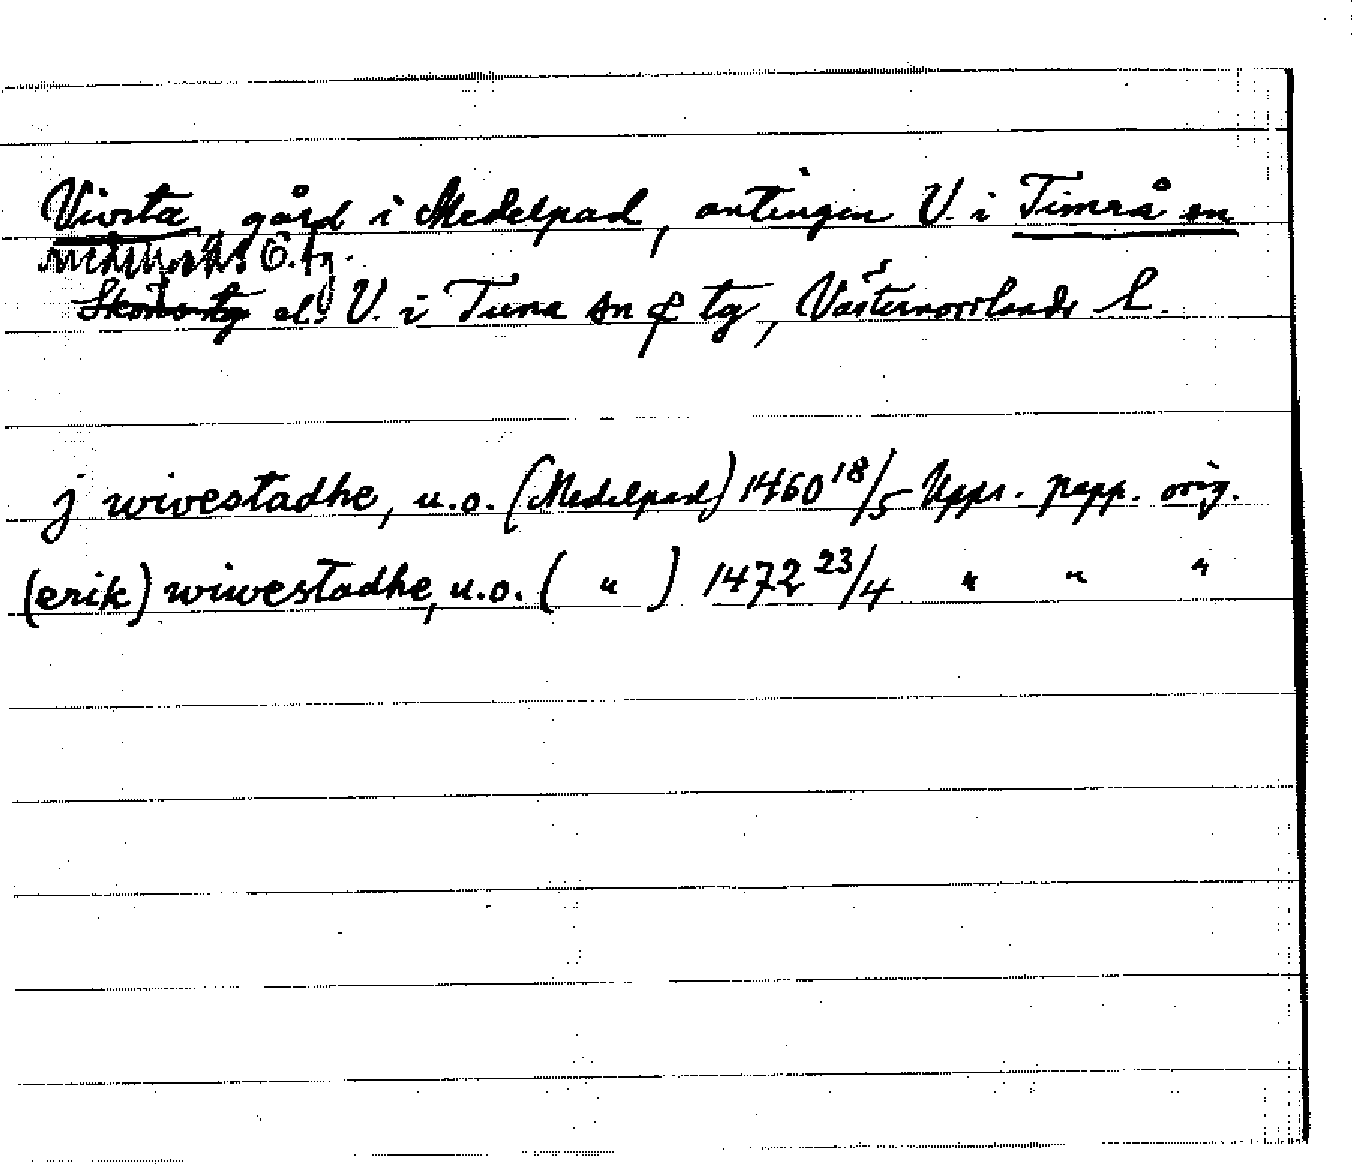 Vivsta, gård i Medelpad, antingen V. i Timrå sn
Medelpads Ö. tg.
Sköns tg el. V. i Tuna sn & tg, Västernorrlands l.
j wivestadhe, u.o. (Medelpad) 1460 18/5 Upps. papp. orig.
(erik) wiwestadhe, u.o. ( " ) 1472 23/4 " " "